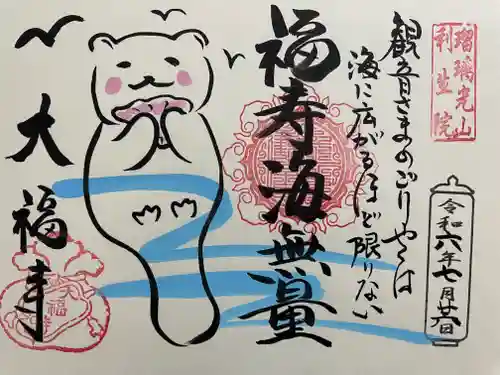 瑠璃光山
利生院
観音さまのごりやくは
海に広がるほど限りない
福寿海無量
大福寺
令和六年七月廿八日
福寺